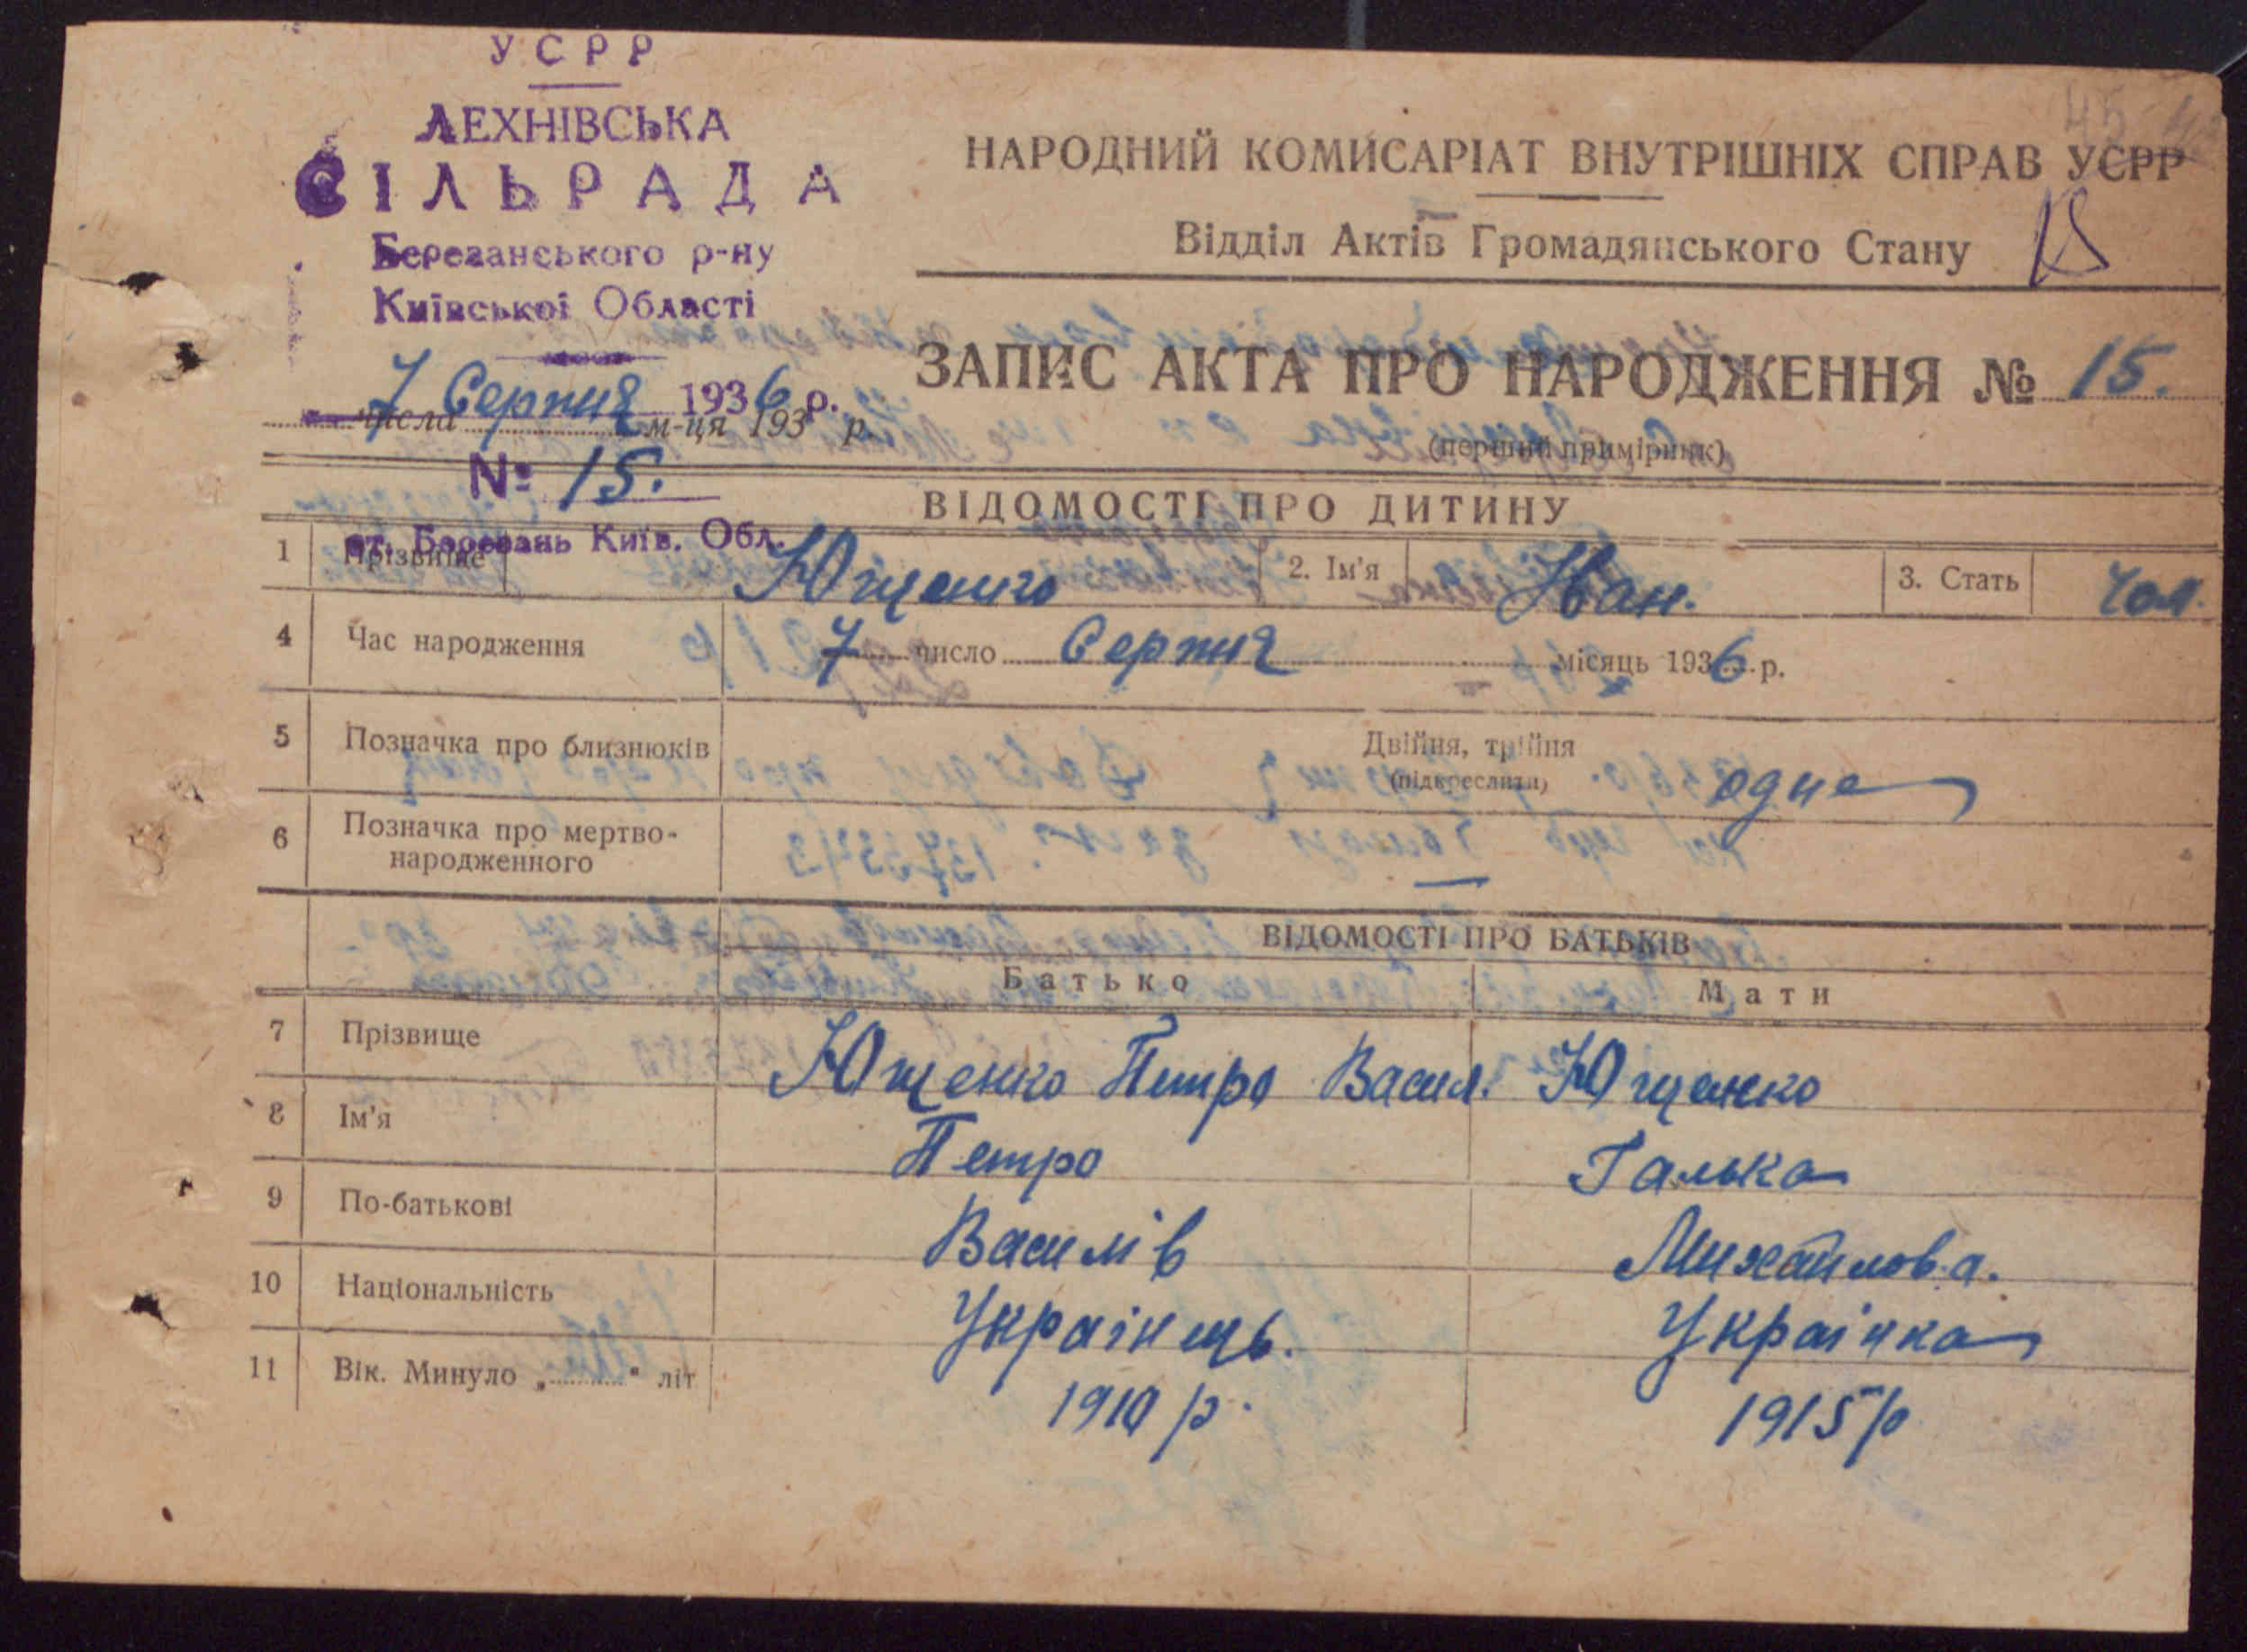 УСРР
ЛЕХНІВСЬКА
СІЛЬРАДА
Березанського р-ну
Київської Області
7 Серпня 1936 р.
числа м-ця 193 р.
№ 15.
ст. Березань Київ. Обл.
НАРОДНИЙ КОМИСАРІАТ ВНУТРІШНІХ СПРАВ УСРР
Відділ Актів Громадянського Стану
ЗАПИС АКТА ПРО НАРОДЖЕННЯ № 15.
(перший примірник)
ВІДОМОСТІ ПРО ДИТИНУ
1 Прізвище Ющенко 2. Ім'я Іван. 3. Стать Чол.
4 Час народження 7 число Серпня місяць 1936 р.
5 Позначка про близнюків Двійня, трійня
(підкреслити) одне
6 Позначка про мертво-
народженного —
ВІДОМОСТІ ПРО БАТЬКІВ
Батько Мати
7 Прізвище Ющенко Петро Васил. Ющенко
8 Ім'я Петро Галька
9 По-батькові Василів Михайлова.
10 Національність Українець. Українка
11 Вік. Минуло „ " літ 1910 р. 1915 р